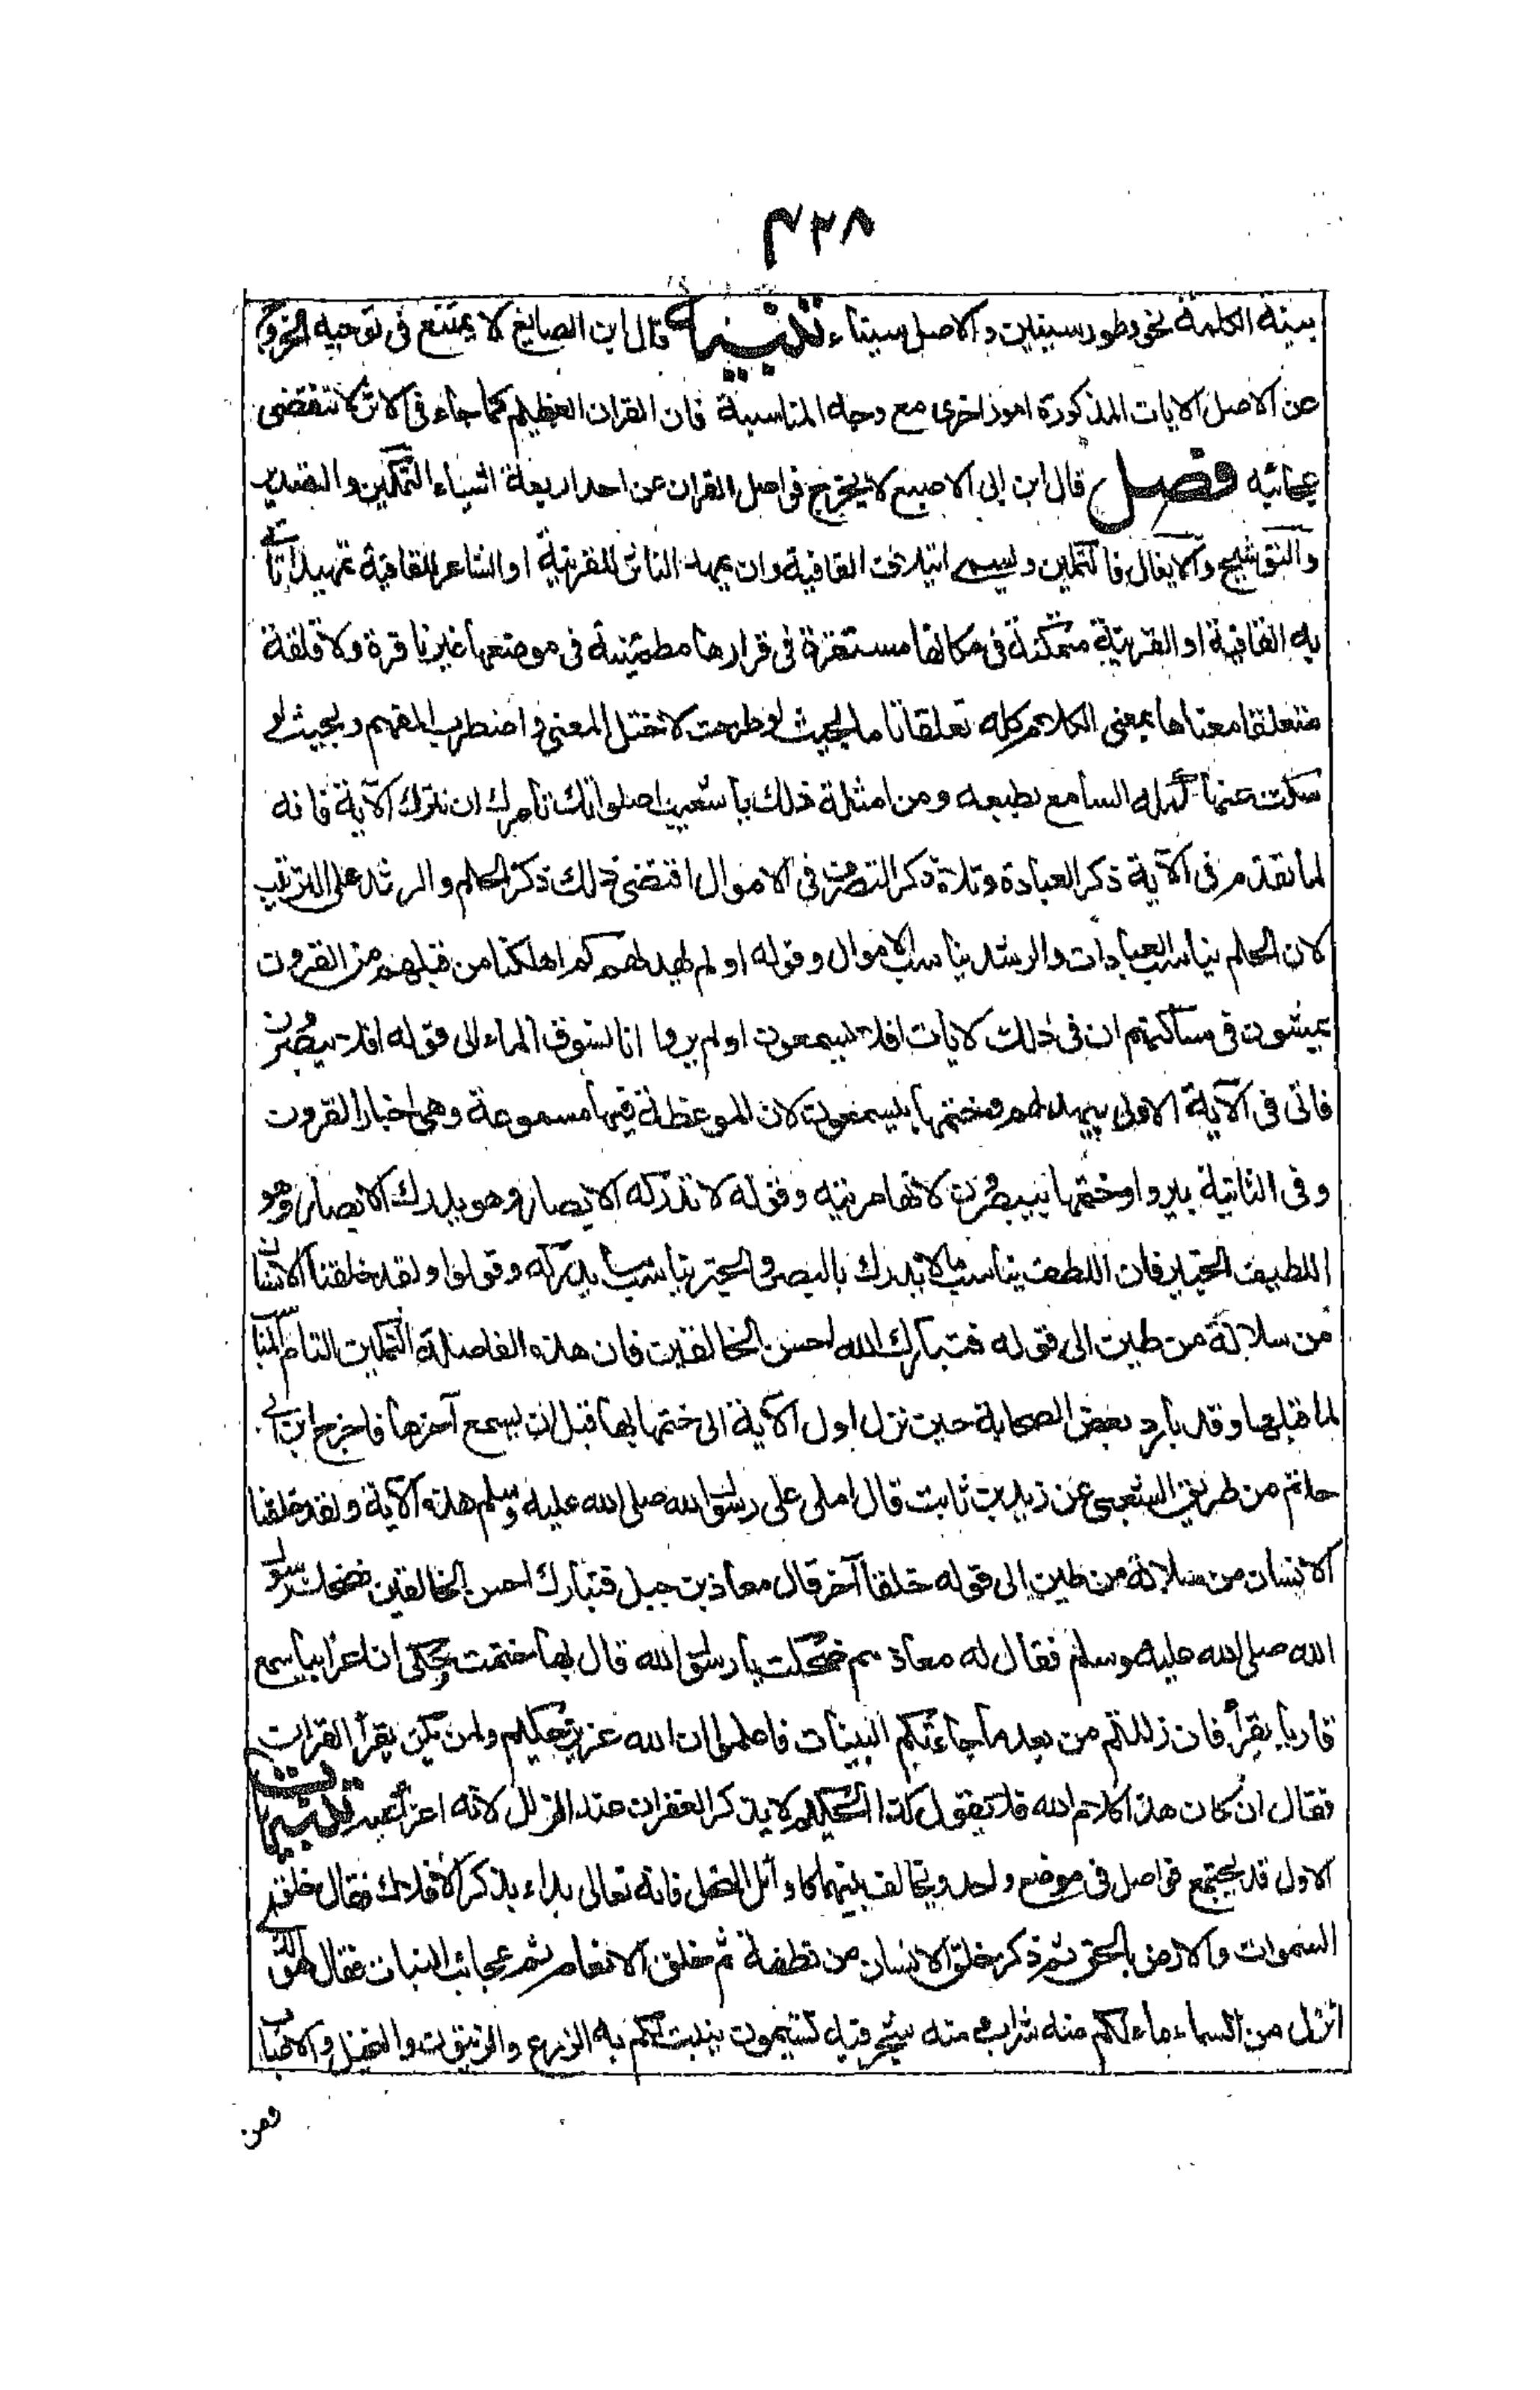 ٤٢٨
بينة الكلمة نحو وطور سينين والاصل سيناء تنبيه قال ابن الصايغ لا يمتنع فى توجيه الخروج
عن الاصل الايات المذكورة امور اخرى مع وجه المناسبة فان القران العظيم كما جاء فى الاثر لا تنقضى
عجائبه فصل قال ابن ابى الاصبع لا يخرج فواصل القران عن احد اربعة اشياء التمكين والتصدير
والتوشيح والايغال فالتمكين ويسمى ايتلاف القافية وان يمهد الناثر للقرينة او الشاعر للقافية تمهيدا تأتى
به القافية او القرينة متمكنة فى مكانها مستقرة فى قرارها مطمئنة فى موضعها غير نافرة ولا قلقة
متعلقا معناها بمعنى الكلام كله تعلقا تاما بحيث لو طرحت لاختل المعنى واضطرب المفهم وبحيث لو
سكت عنها كمله السامع بطبعه ومن امثلة ذلك يا شعيب اصلواتك تأمرك ان نترك الآية فانه
لما تقدم فى الآية ذكر العبادة وتلاه ذكر التصرف فى الاموال اقتضى ذلك ذكر الحلم والرشد على الترتيب
لان الحلم يناسب العبادات والرشد يناسب الاموال وقوله اولم يهد لهم كم اهلكنا من قبلهم من القرون
يمشون فى مساكنهم ان فى ذلك لايات افلا يسمعون اولم يروا انا نسوق الماء الى قوله افلا يبصرون
فاتى فى الآية الاولى بيهد لهم وختمها بيسمعون لان الموعظة فيها مسموعة وهى اخبار القرون
وفى الثانية بيروا وختمها بيبصرون لانها مرئيه وقوله لا تدركه الابصار وهو يدرك الابصار وهو
اللطيف الخبير فان اللطف يناسب ما لا يدرك بالبصر والخبر يناسب ما يدركه وقوله ولقد خلقنا الانسان
من سلالة من طين الى قوله فتبارك الله احسن الخالقين فان هذه الفاصلة التمكين التام المناسب
لما قبلها وقد بادر بعض الصحابة حين نزل اول الآية الى ختمها بها قبل ان يسمع آخرها فاخرج ابن ابى
حاتم من طريق الشعبى عن زيد بن ثابت قال املى على رسول الله صلى الله عليه وسلم هذه الآية ولقد خلقنا
الانسان من سلالة من طين الى قوله خلقا آخر قال معاذ بن جبل فتبارك احسن الخالقين فضحك رسول
الله صلى الله عليه وسلم فقال له معاذ مم ضحكت يا رسول الله قال بها ختمت وحكى ان اعرابيا سمع
قاريا يقرأ فان زللتم من بعد ما جاءتكم البينات فاعلموا ان الله عزيز حكيم ولم يكن يقرأ القران
فقال ان كان هذا كلام الله فلا يقول كذا الحكيم لا يذكر الغفران عند الزلل لانه اغراء عليه تنبيهات
الاول قد يجتمع فواصل فى موضع واحد ويخالف بينهما كاوائل النحل فانه تعالى بداء بذكر الافلاك فقال خلق
السموات والارض بالحق ثم ذكر خلق الانسان من نطفة ثم خلق الانعام ثم عجائب النبات فقال هو الذى
انزل من السماء ماء لكم منه شراب ومنه شجر فيه تسيمون ينبت لكم به الزرع والزيتون والنخيل والاعناب